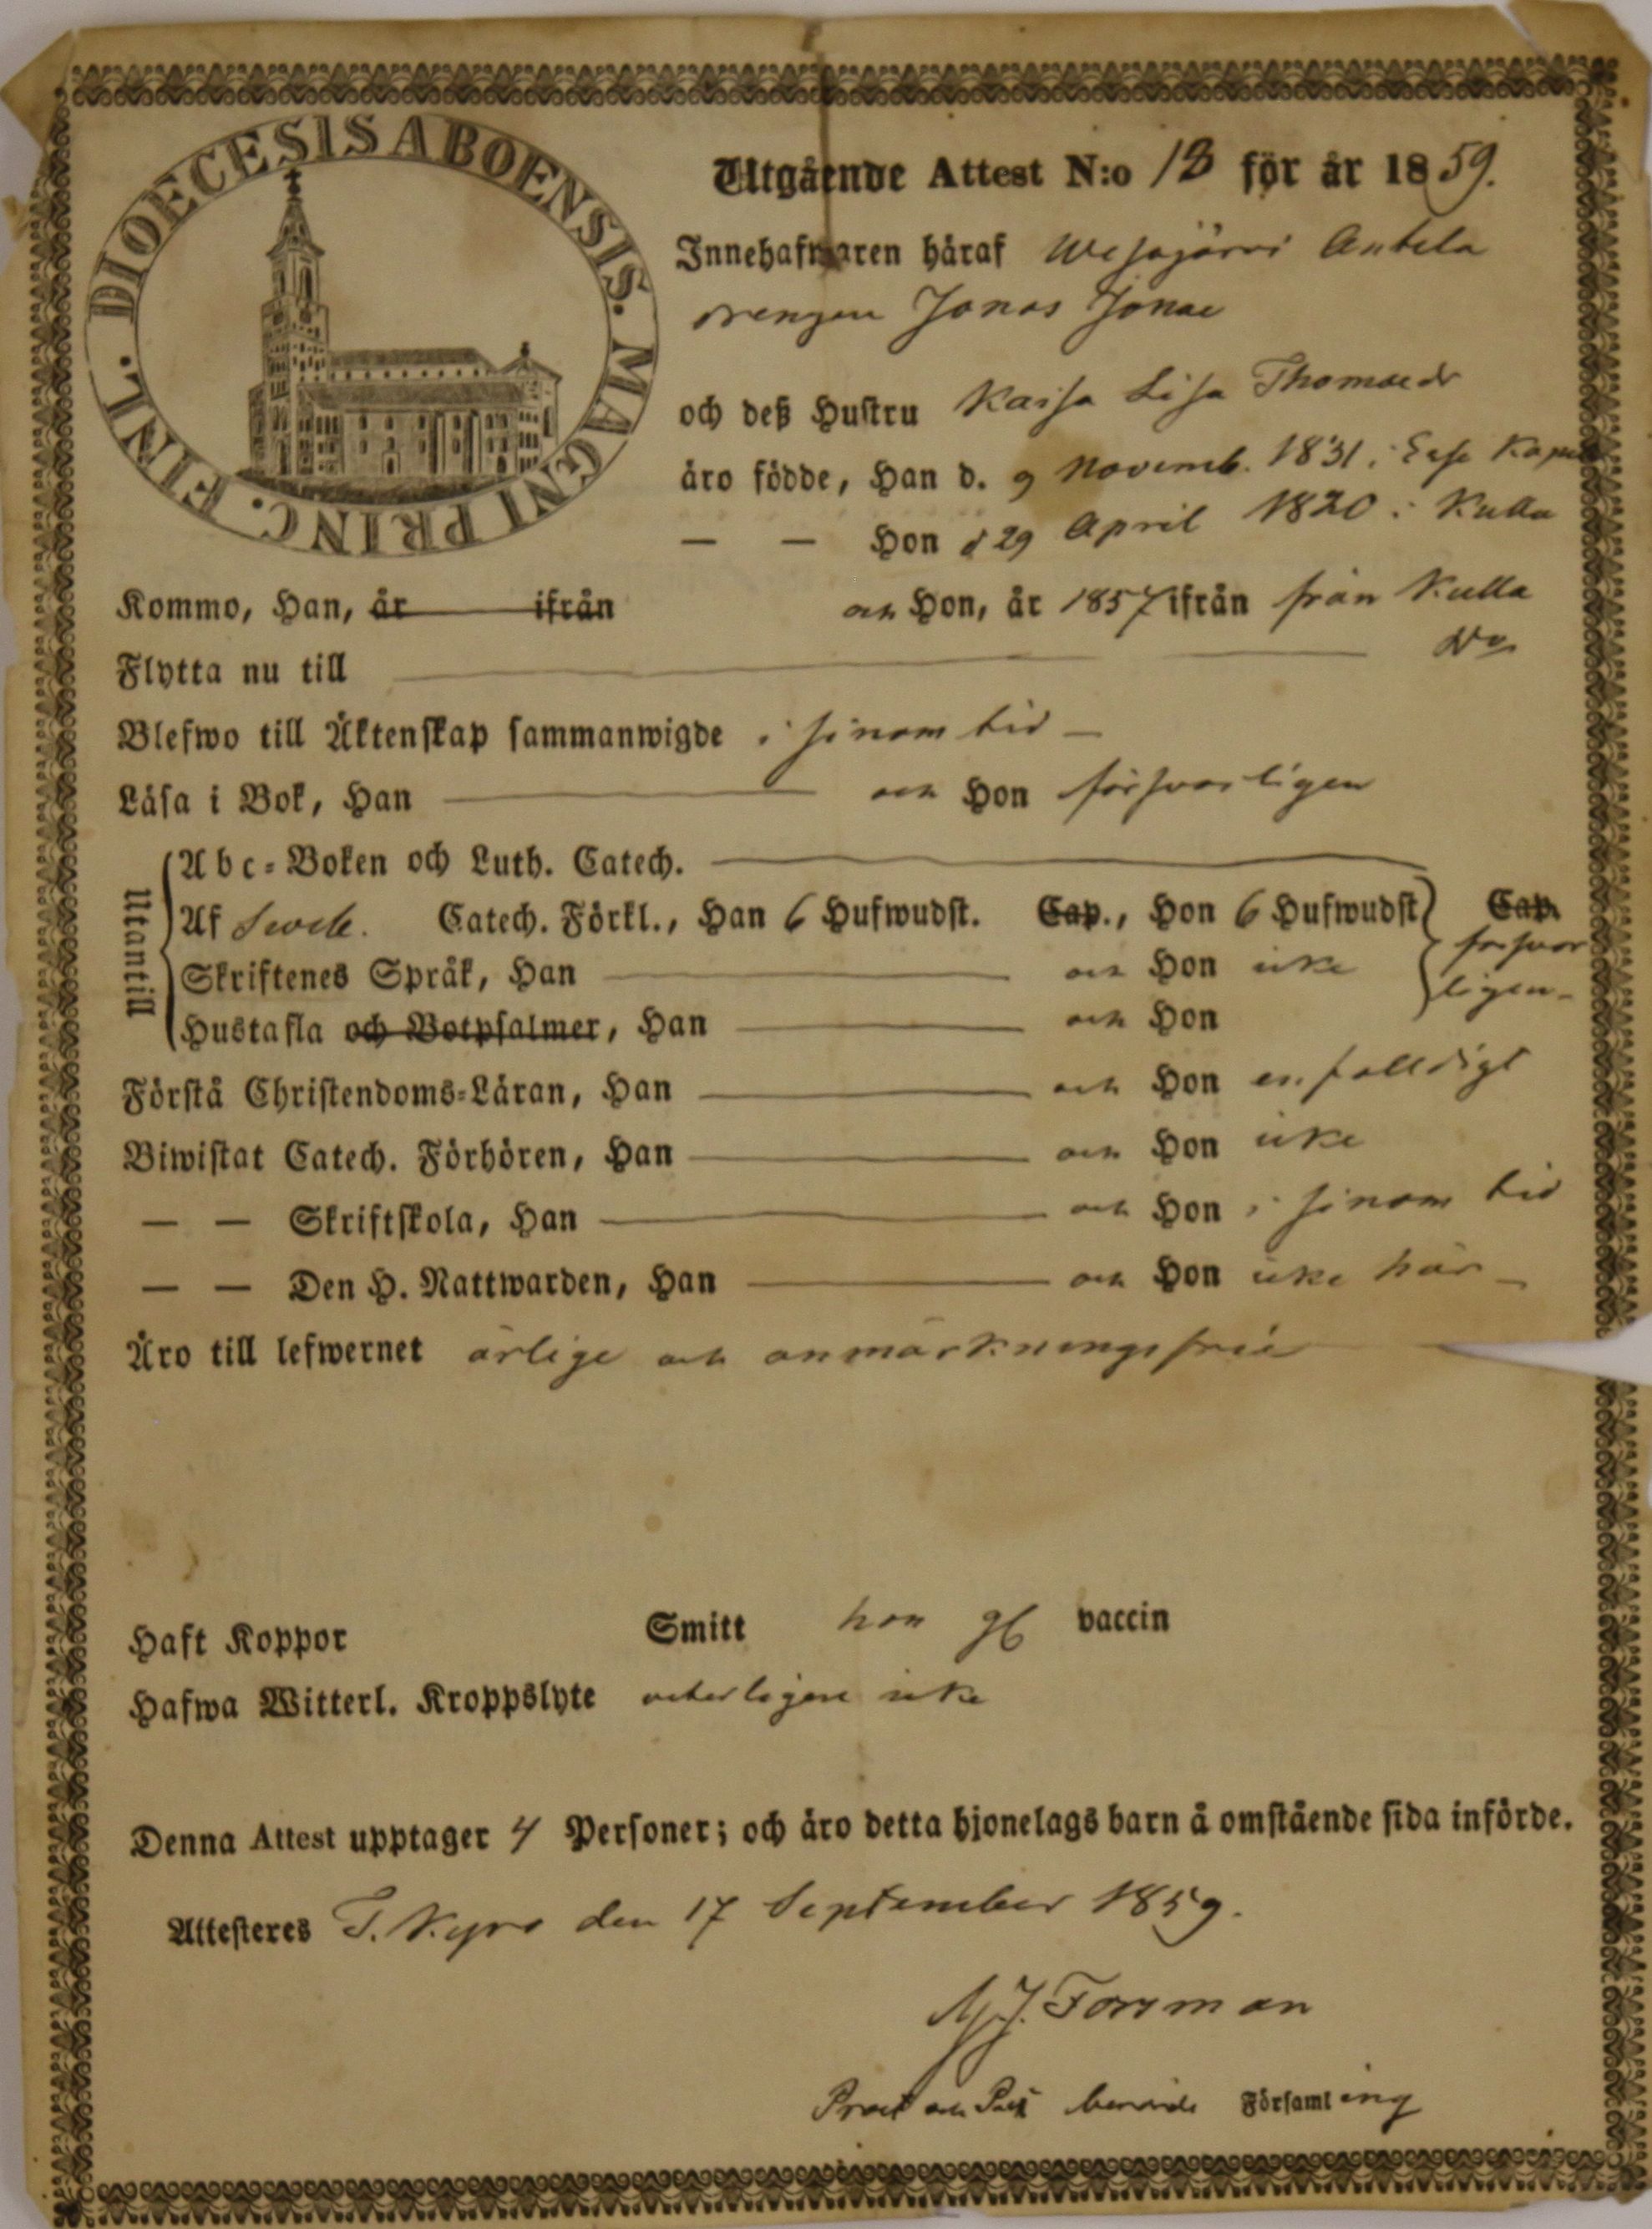 DIOECESIS ABOENSIS. MAGNI PRINC. FINL.
Utgående Attest N:o 18 för år 1859.
Innehafwaren häraf Wesajärvi Anttila
drengen Jonas Jonae
och deß Hustru Kaisa Lisa Thomaedr
äro födde, Han d. 9 Novemb. 1831 i
— — Hon d 29 April 1820 i Kulla
Kommo, Han, år ifrån och Hon, år 1857 ifrån från Kulla
Flytta nu till
Blefwo till Äktenskap sammanwigde i sinom tid —
Läsa i Bok, Han och Hon försvarligen
Utantill
Abc-Boken och Luth. Catech.
Af Catech. Förkl., Han 6 Hufwudst. Cap., Hon 6 Hufwudst Cap.
försvarligen
Skriftenes Språk, Han och Hon icke
Hustafla och Botpsalmer, Han och Hon
Förstå Christendoms-Läran, Han och Hon enfalldigt
Biwistat Catech. Förhören, Han och Hon icke
— — Skriftskola, Han och Hon i sinom tid
— — Den H. Nattwarden, Han och Hon icke här —
Äro till lefwernet ärlige och anmärkningsfrie
Haft Koppor Smitt hon gl vaccin
Hafwa Witterl. Kroppslyte veterligen icke
Denna Attest upptager 4 Personer; och äro detta hjonelags barn å omstående sida införde.
Attesteres T. Kyro den 17 September 1859.
Forsman
Prost och Past berörde Församling